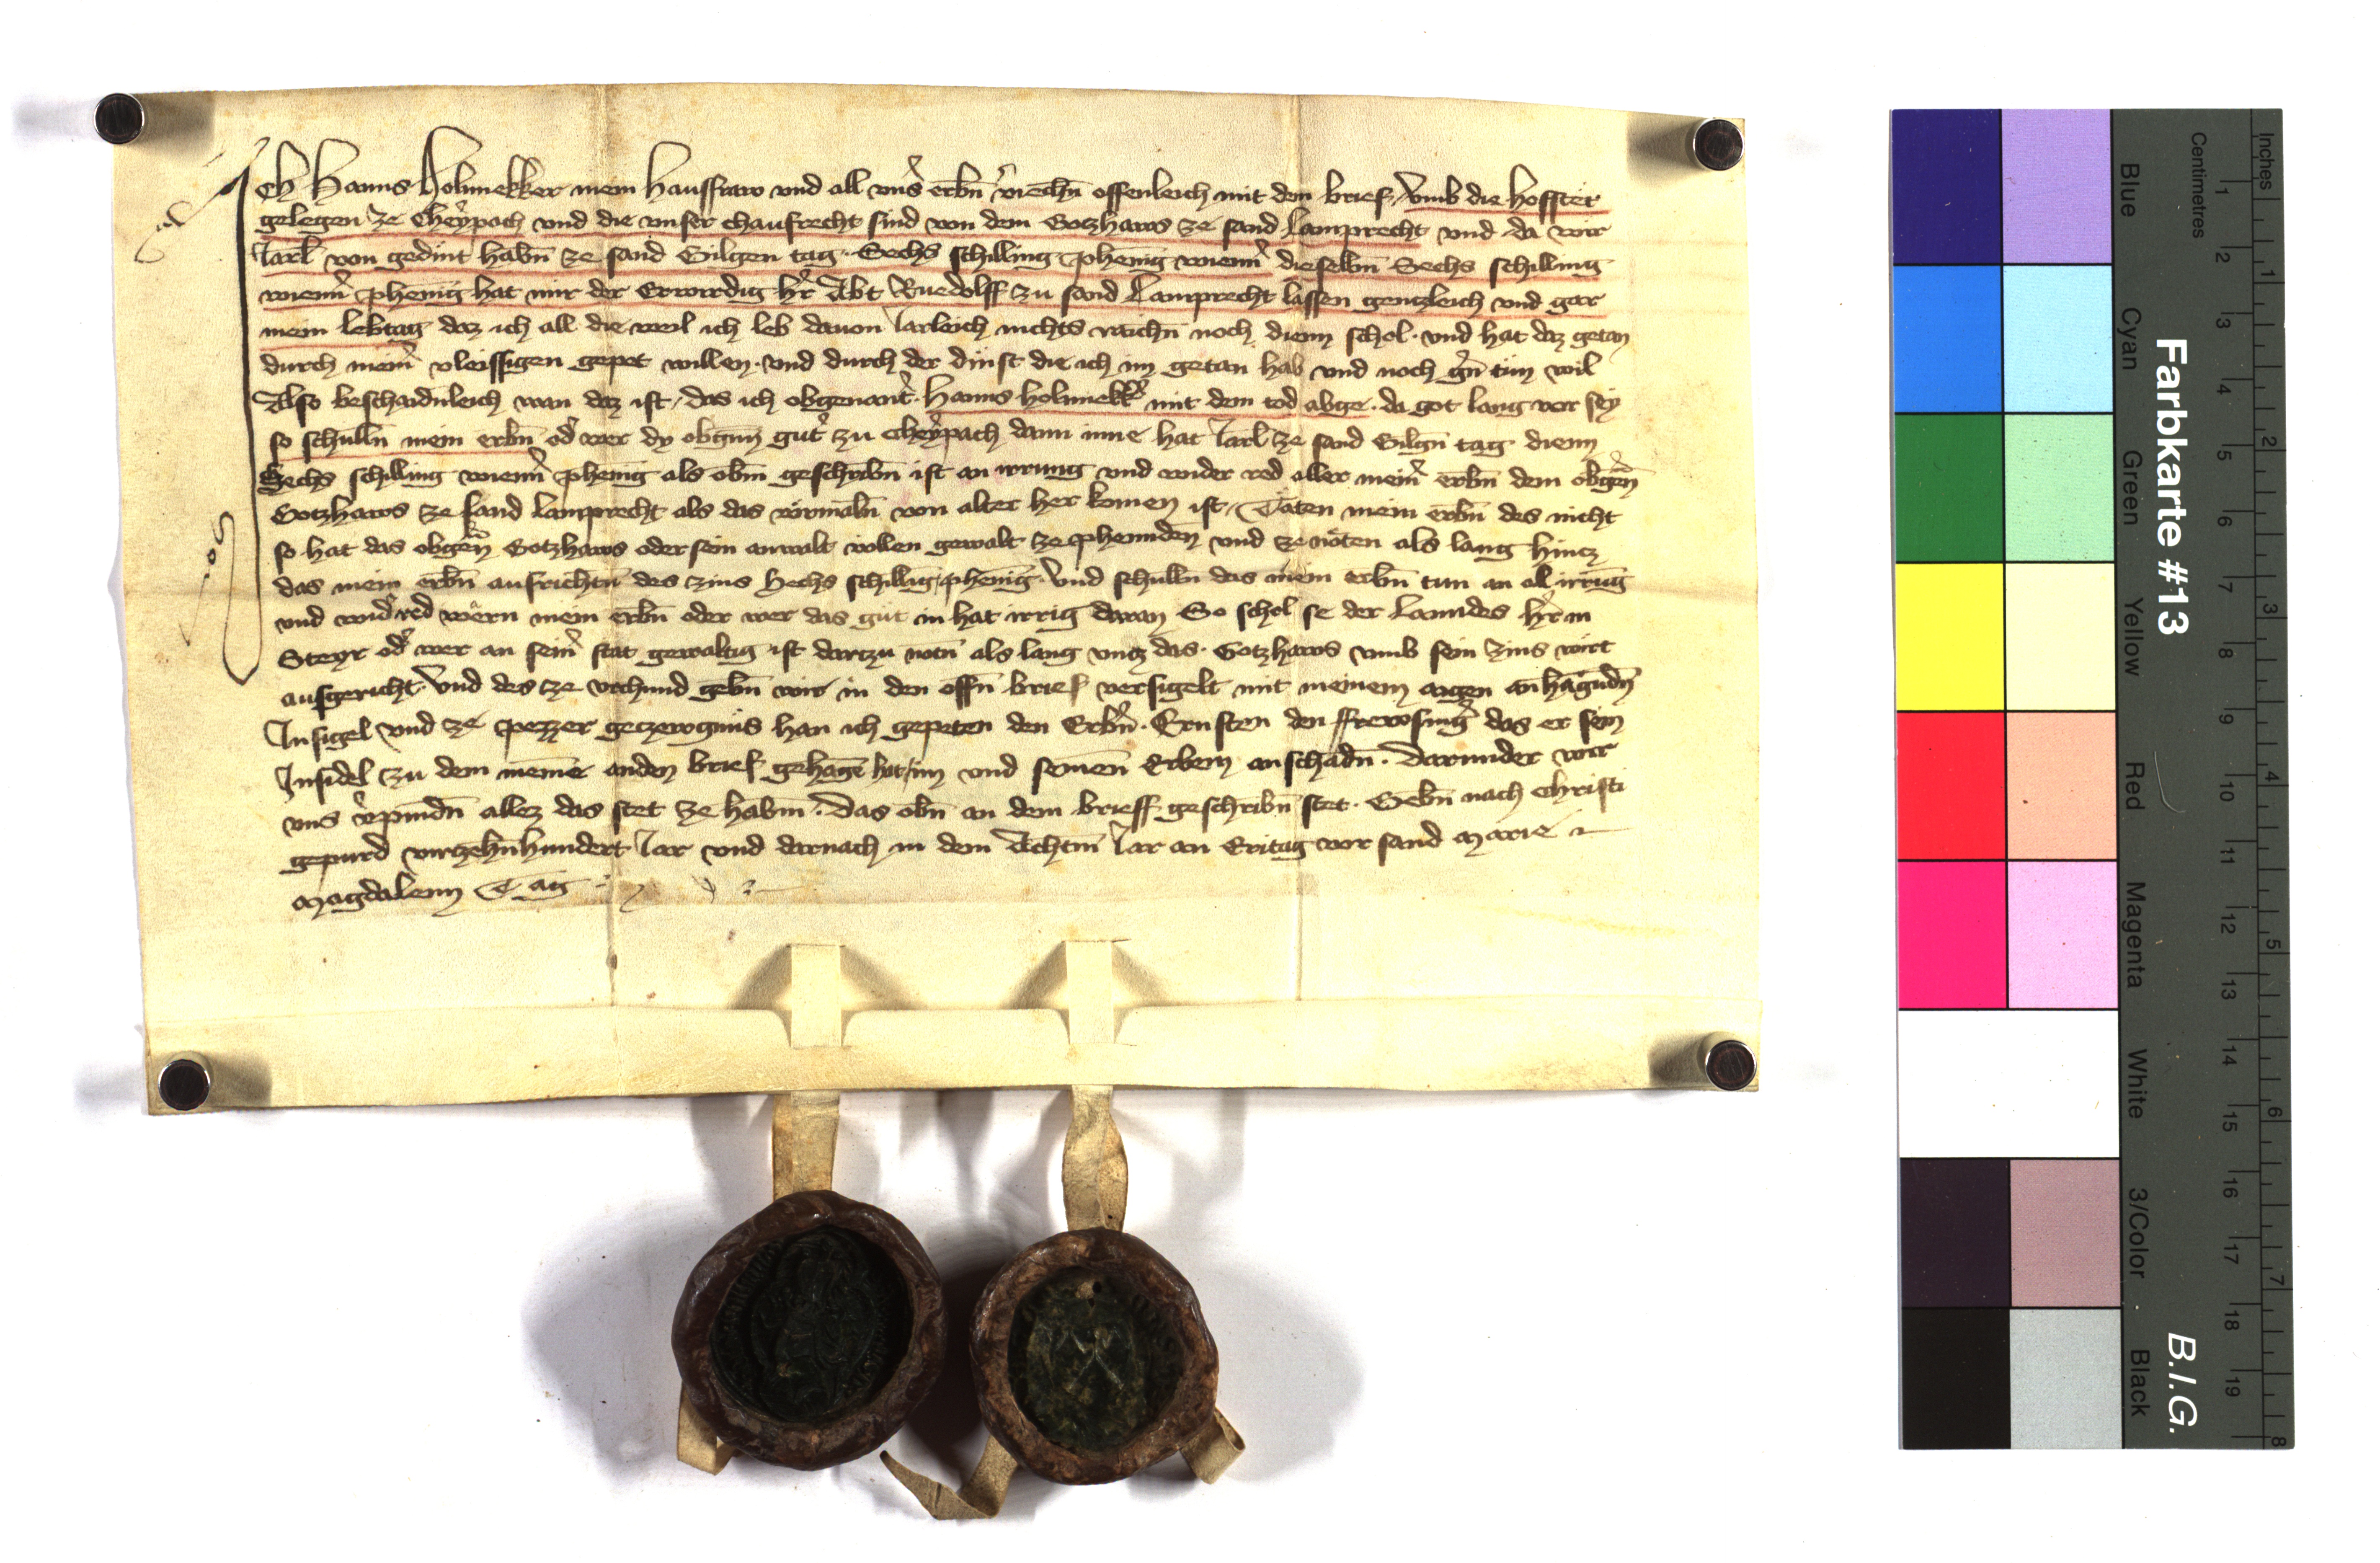 Ich Hanns Holnnekker mein Hausfraw vnd all vnẜ erbn̄ v̓iechn̄ offenleich mit dem brief, vmb die hofstet
gelegen ze Cheÿpach vnd die vnser chaufrecht sind von dem Gotzhaws ze sand Lamprecht vnd da wir
Jarl von gedint habn̄ ze sand Gilgen tag. Sechs schilling phenig wienn̓ dieselbn̄ Sechs schilling
wienn̓ phenig hat mir der Erwirdig h̓r Abt Ruedolff zu sand Lamprecht lassen gentzleich vnd gar
mein lebtag daz ich all die weil ich leb dauon Jarleich nichts raichn̄ noch dienn schol. vnd hat daz getan
durch mein̓ vleissigen gepet willen. vnd durch der dinst die ich im getan hab vnd noch g̓n tün wil
Also beschaidnleich wan daz ist, das ich obgenant̓. Hanns holnnekk̓ mit dem tod abge. da got lang vor sey
so schulln̄ mein erbn̄ od̓ wer dy obgnn̄ gut̓ zu Cheÿpach dann inne hat Jarl ze sand Gilgn̄ tag dienn
Sechs schilling wienn̓ phenig als obn̄ geschribn̄ ist an irrung vnd wider red aller mein̓ erbn̄ dem obgen̄
Gotzhaws ze sand Lamprecht als das vörmaln̄ von alter her komen ist, Täten mein erbn̄ des nicht
so hat das obgen̄ Gotzhaws oder sein anwalt vollen gewalt ze phennden vnd ze nöten als lang hincz
das mein erbn̄ aufrichtn̄ des zins Sechs schillig phenig. Vnd schulln̄ das mein erbn̄ tun an all irrūg
vnd wid̓red wërn mein erbn̄ oder wer das güt in hat irrig daran So schol se der Lanndes h̓r in
Steyr od̓ wer an sein̓ stat gewaltig ist dartzu notn̄ als lang vntz das. Gotzhaws vmb sein zins wirt
ausgericht. Vnd des ze vrchund gebn̄ wir in den offn̄ brief versigelt mit meinem aigen anhāgūdn̄
Insigel vnd ze pezzer geczewgnüs han ich gepeten den Erbn̓. Ernsten den ffrewsing̓ das er sein
Insidel zu dem meinē anden brief gehāgē hat im vnd seinen Erbem an schadn̄. Darunder wir
vns v̓pindn̄ allez das stet ze habm̄. Das obn̄ an dem brieff geschribn̄ stet. Gebn̄ nach Christi
gepurd virtzehn̄hundert Jar vnd darnach in dem Achtm̄ Jar an Eritag vor sand Marie
Magdalenn Tag
Farbkarte #13
B.I.G.
Centimetres
Inches
Blue
Cyan
Green
Yellow
Red
Magenta
White
3/Color
Black
1 2 3 4 5 6 7 8 9 10 11 12 13 14 15 16 17 18 19
1 2 3 4 5 6 7 8